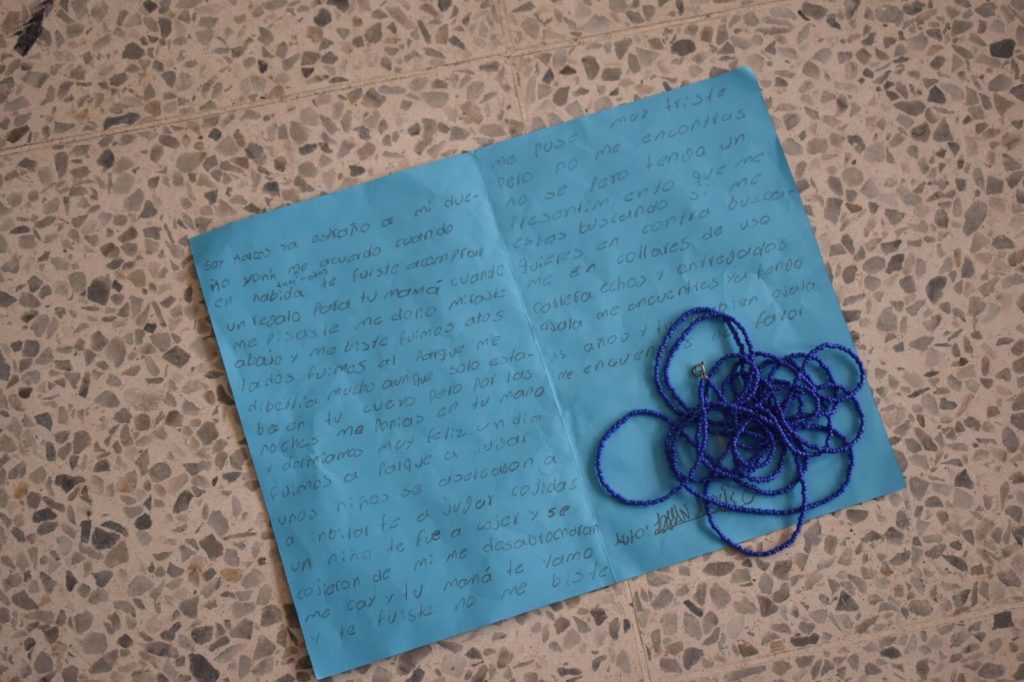 soy Marcos ya estraño a mi due-
ño yonh me acuerdo cuando
en nabida te fuiste acomprar
un regalo para tu mamá cuando
me pisaste me dolio miraste
abajo y me biste fuimos alos
lados fuimos al parque me
dibertia mucho aunque solo esta-
ba en tu cuero pero por las
noches me ponias en tu mano
y dormiamos muy feliz un dia
fuimos a parque a jugar
unos niños se asercaron a
a inbitar te a jugar cojidas
un niño te fue a cojer y se
cojieron de mi me desabrocharon
me cay y tu mamá te yamo
y te fuiste no me biste
me puse muy triste
pero no me encontras
no se pero tengo un
presentimiento que me
estas buscando si me
quieres en contra busca-
me en collares de uso
carrera echos y entregados
ojala me encuentres ya tengo
15 años y bien ojala
me encuentres favor
Autor: